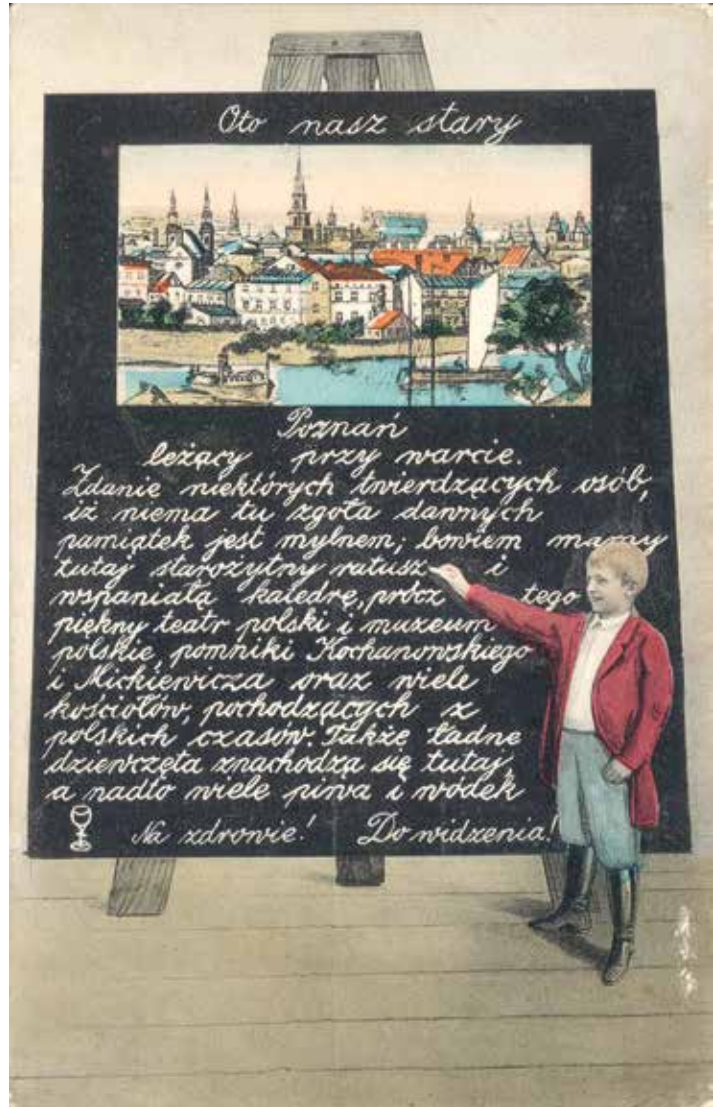 Oto nasz stary
Poznań
leżący przy warcie.
Zdanie niektórych twierdzących osób,
iż niema tu zgoła dawnych
pamiątek jest mylnem; bowiem mamy
tutaj starożytny ratusz i
wspaniałą katedrę, prócz tego
piękny teatr polski i muzeum
polskie, pomniki Kochanowskiego
i Mickiewicza oraz wiele
kościołów, pochodzących z
polskich czasów. Także ładne
dziewczęta znachodzą się tutaj,
a nadto wiele piwa i wódek
Na zdrowie! Do widzenia!